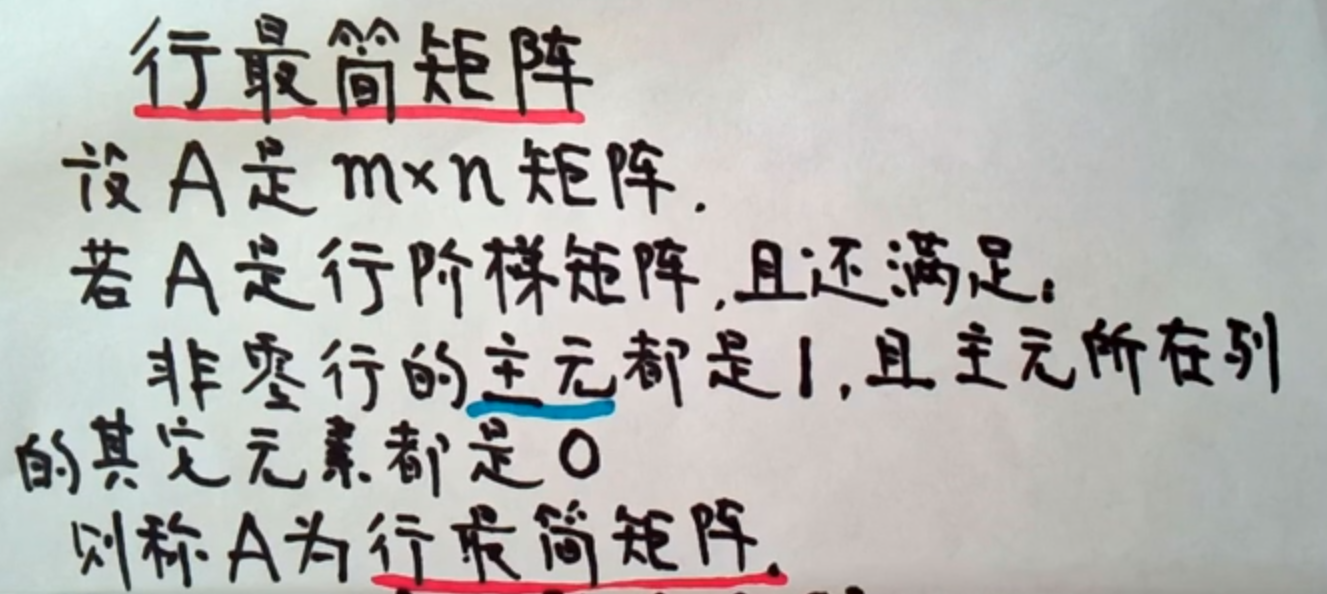 行最简矩阵
设A是m×n矩阵.
若A是行阶梯矩阵,且还满足:
非零行的主元都是1,且主元所在列
的其它元素都是0
则称A为行最简矩阵.